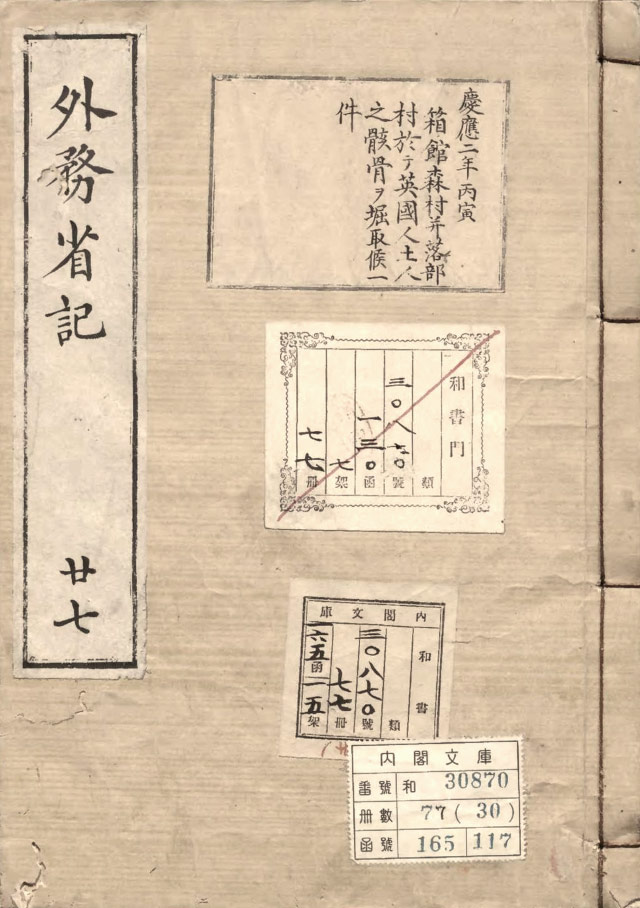 外務省記
廿七
慶應二年丙寅
箱館森村并落部
村於テ英國人土人
之骸骨ヲ堀取候一
件
和書門
類
三〇八七〇號
一三〇函
七架
七七冊
內閣文庫
和書
類
三〇八七〇號
七七冊
一六五函一五架
內閣文庫
番號 和 30870
冊數 77(30)
函號 165 117